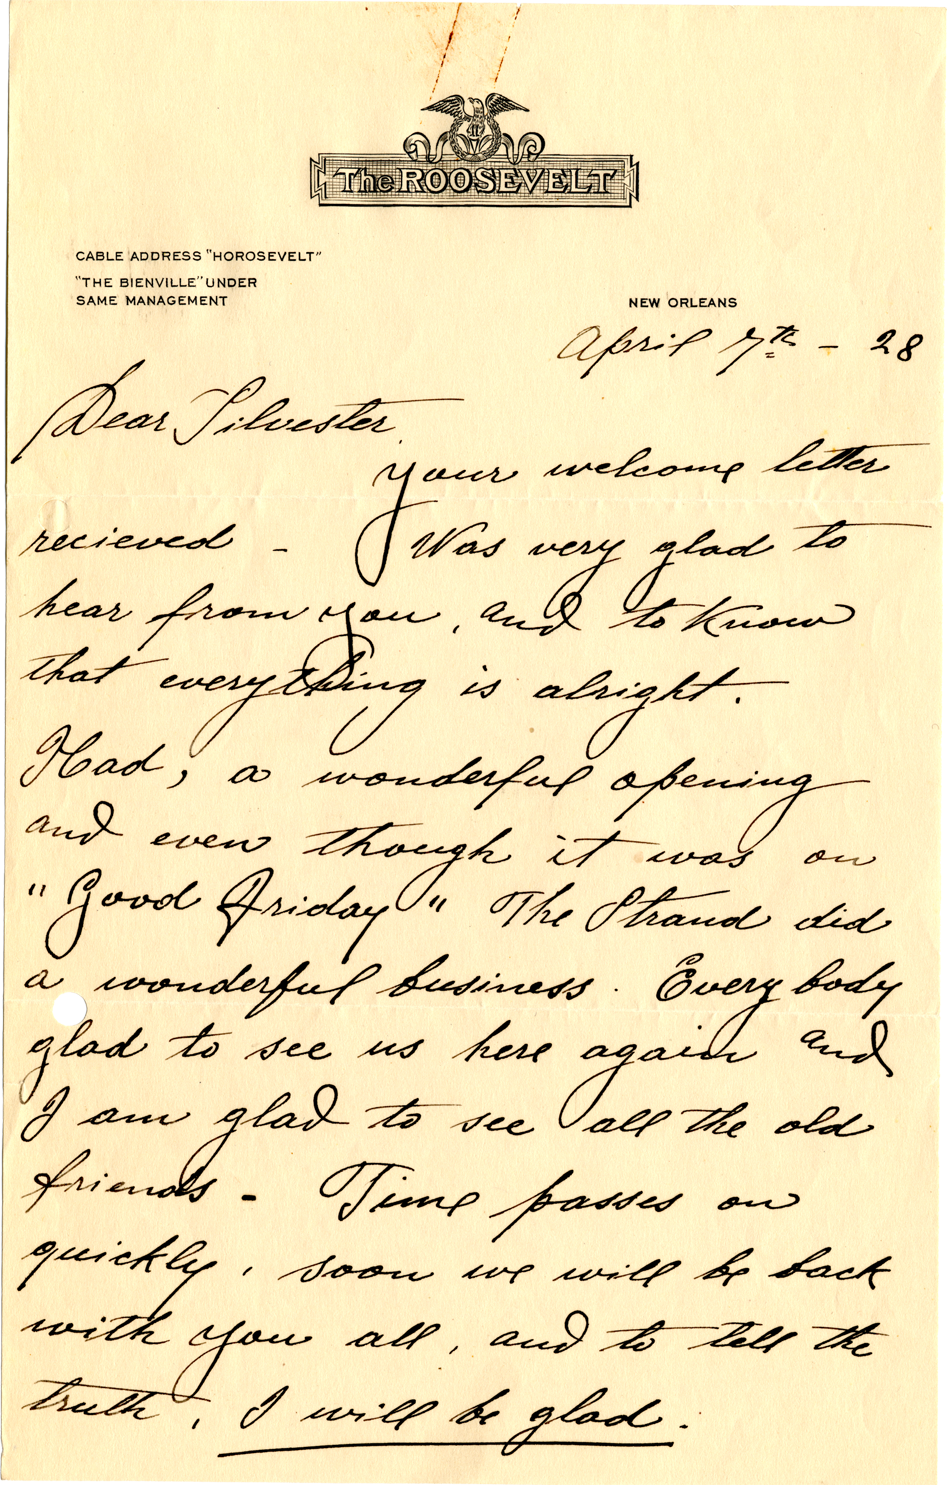 The ROOSEVELT
CABLE ADDRESS "HOROSEVELT"
"THE BIENVILLE" UNDER
SAME MANAGEMENT
NEW ORLEANS
April 7th - 28
Dear Silvester
your welcome letter
recieved - Was very glad to
hear from you, and to know
that everything is alright.
Had, a wonderful opening
and even though it was on
"Good Friday" The Strand did
a wonderful business. Every body
glad to see us here again and
I am glad to see all the old
friends - Time passes on
quickly, soon we will be back
with you all, and to tell the
truth, I will be glad.